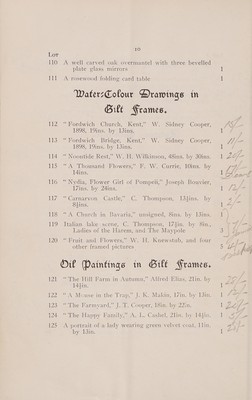 10
Lot
110 A well carved oak overmantel with three bevelled
plate glass mirrors 1
111 A rosewood folding card table 1
Water-Colour Drawings in
Gilt Frames.
112 "Fordwich Church, Kent," W. Sidney Cooper,
1898, 19ins. by 13ins. 1
113 "Fordwich Bridge, Kent," W. Sidney Cooper,
1898, 19ins. by 13ins. 1
114 "Noontide Rest," W. H. Wilkinson, 48ins. by 30ins. 1
115 "A Thousand Flowers," F. W. Currie, 18ins. by
14ins. 1
116 "Nydia, Flower Girl of Pompeii," Joseph Bouvier,
17ins. by 24ins. 1
117 "Carnarvon Castle," C. Thompson, 13½ins. by
8½ins. 1
118 "A Church in Bavaria," unsigned, 8ins. by 13ins. 1
119 Italian lake scene, C. Thompson, 17½in. by 8in.,
Ladies of the Harem, and The Maypole 3
120 "Fruit and Flowers," W. H. Knewstub, and four
other framed pictures
Oil Paintings in Gilt Frames.
121 "The Hill Farm in Autumn," Alfred Elias, 21in. by
14½in. 1
122 "A Mouse in the Trap," J. K. Makin, 17in. by 13in. 1
123 "The Farmyard," J. T. Cooper, 16in. by 22in. 1
124 "The Happy Family," A. L. Cashel, 21in. by 14½in. 1
125 A portrait of a lady wearing green velvet coat, 11in.
by 13in. 1